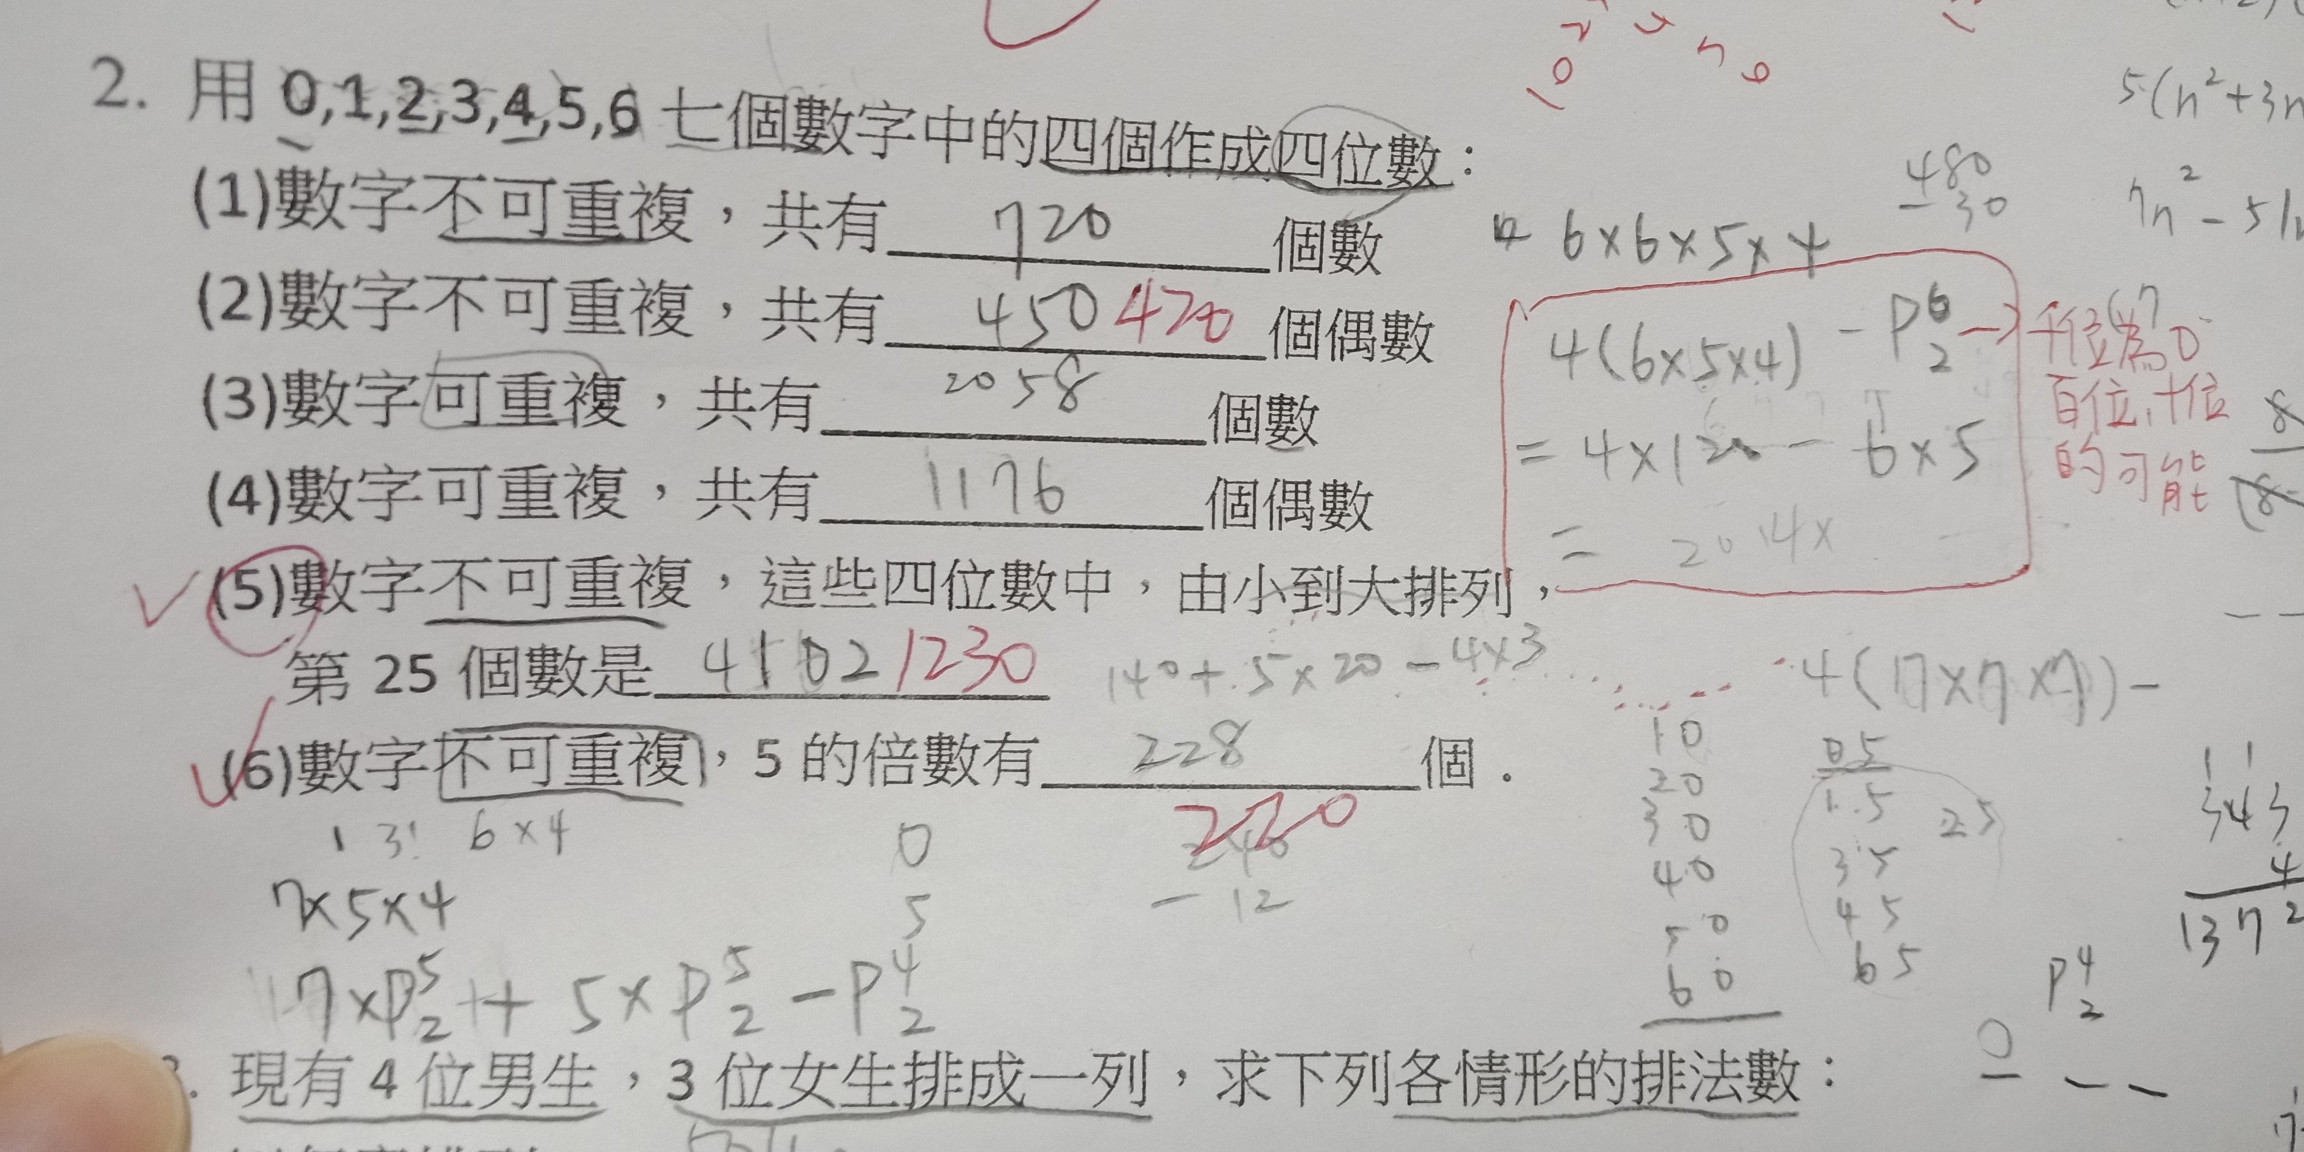 2. 用 0,1,2,3,4,5,6 七個數字中的四個作成四位數：
(1)數字不可重複，共有 720 個數
6×6×5×4
480
-30
(2)數字不可重複，共有 450 420 個偶數
4(6×5×4) - P⁶₂ → 千位為0
百位,十位
的可能
= 4×120 - 6×5
=
(3)數字可重複，共有 2058 個數
(4)數字可重複，共有 1176 個偶數
(5)數字不可重複，這些四位數中，由小到大排列，
第 25 個數是 4502 1230
140+5×20-4×3
4(7×7×7)-
(6)數字不可重複，5 的倍數有 228 個．
220
240
-12
1 3! 6×4
7×5×4
0
5
7×P⁵₂ + 5×P⁵₂ - P⁴₂
10
20
30
40
50
60
05
15
25
35
45
65
343
4
1372
P⁴₂
0
5(n²+3n
7n²-51
現有 4 位男生，3 位女生排成一列，求下列各情形的排法數：